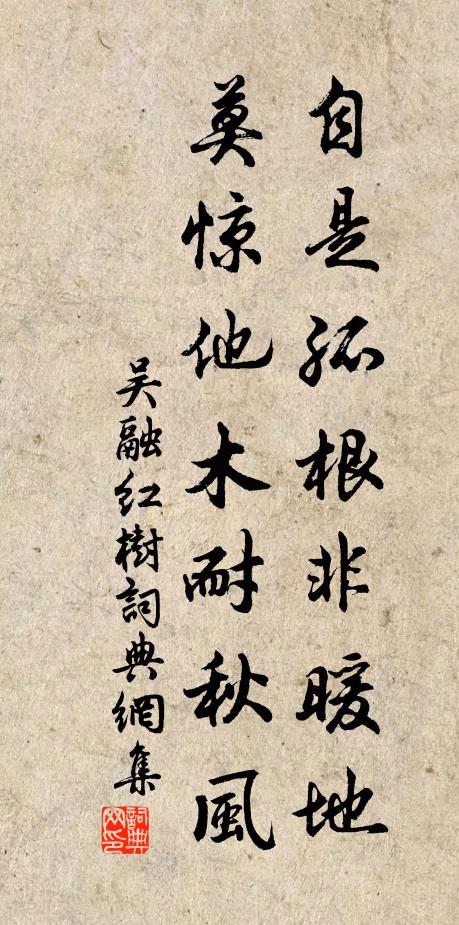 自是孤根非暖地
莫惊他木耐秋風
吴融红樹詞典網集
詞典网印